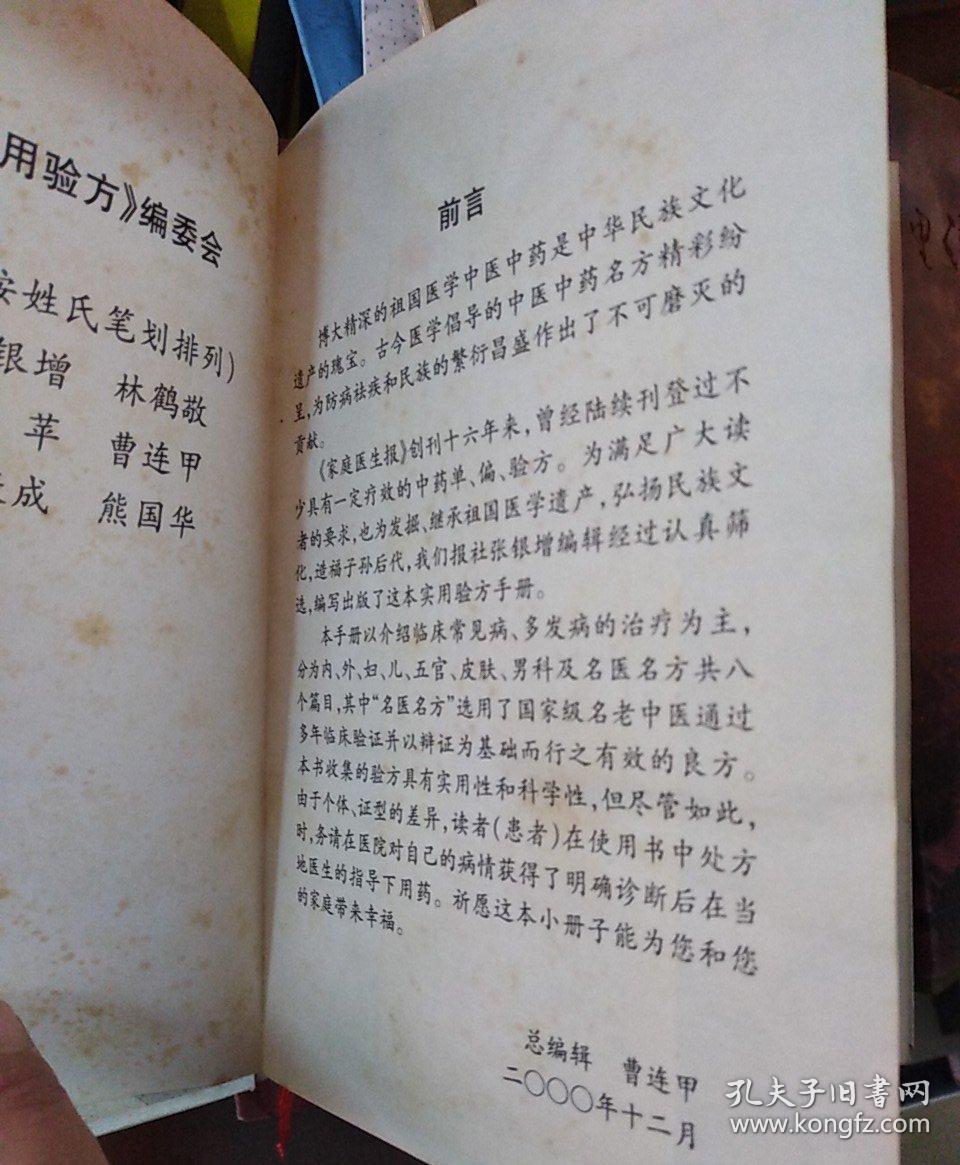 用验方》编委会
按姓氏笔划排列)
银增 林鹤敬
苹 曹连甲
成 熊国华
前言
博大精深的祖国医学中医中药是中华民族文化
遗产的瑰宝。古今医学倡导的中医中药名方精彩纷
呈,为防病祛疾和民族的繁衍昌盛作出了不可磨灭的
贡献。
《家庭医生报》创刊十六年来,曾经陆续刊登过不
少具有一定疗效的中药单、偏、验方。为满足广大读
者的要求,也为发掘、继承祖国医学遗产,弘扬民族文
化,造福子孙后代,我们报社张银增编辑经过认真筛
选,编写出版了这本实用验方手册。
本手册以介绍临床常见病、多发病的治疗为主,
分为内、外、妇、儿、五官、皮肤、男科及名医名方共八
个篇目,其中“名医名方”选用了国家级名老中医通过
多年临床验证并以辩证为基础而行之有效的良方。
本书收集的验方具有实用性和科学性,但尽管如此,
由于个体、证型的差异,读者(患者)在使用书中处方
时,务请在医院对自己的病情获得了明确诊断后在当
地医生的指导下用药。祈愿这本小册子能为您和您
的家庭带来幸福。
总编辑 曹连甲
二〇〇〇年十二月
孔夫子旧书网
www.kongfz.com